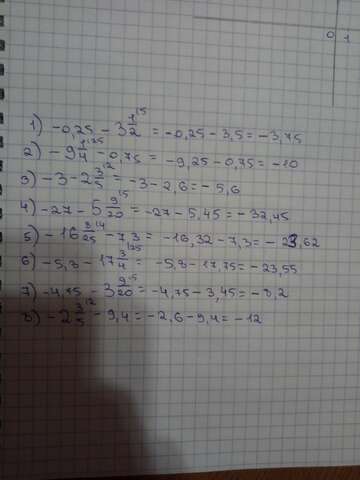 0 1
1) -0,25 - 3 1/2 /5 = -0,25 - 3,5 = -3,75
2) -9 1/4 /25 - 0,75 = -9,25 - 0,75 = -10
3) -3 - 2 3/5 /2 = -3 - 2,6 = -5,6
4) -27 - 5 9/20 /5 = -27 - 5,45 = -32,45
5) -16 8/25 /4 - 7,3 = -16,32 - 7,3 = -23,62
6) -5,8 - 17 3/4 /25 = -5,8 - 17,75 = -23,55
7) -4,75 - 3 9/20 /5 = -4,75 - 3,45 = -8,2
8) -2 3/5 /2 - 9,4 = -2,6 - 9,4 = -12